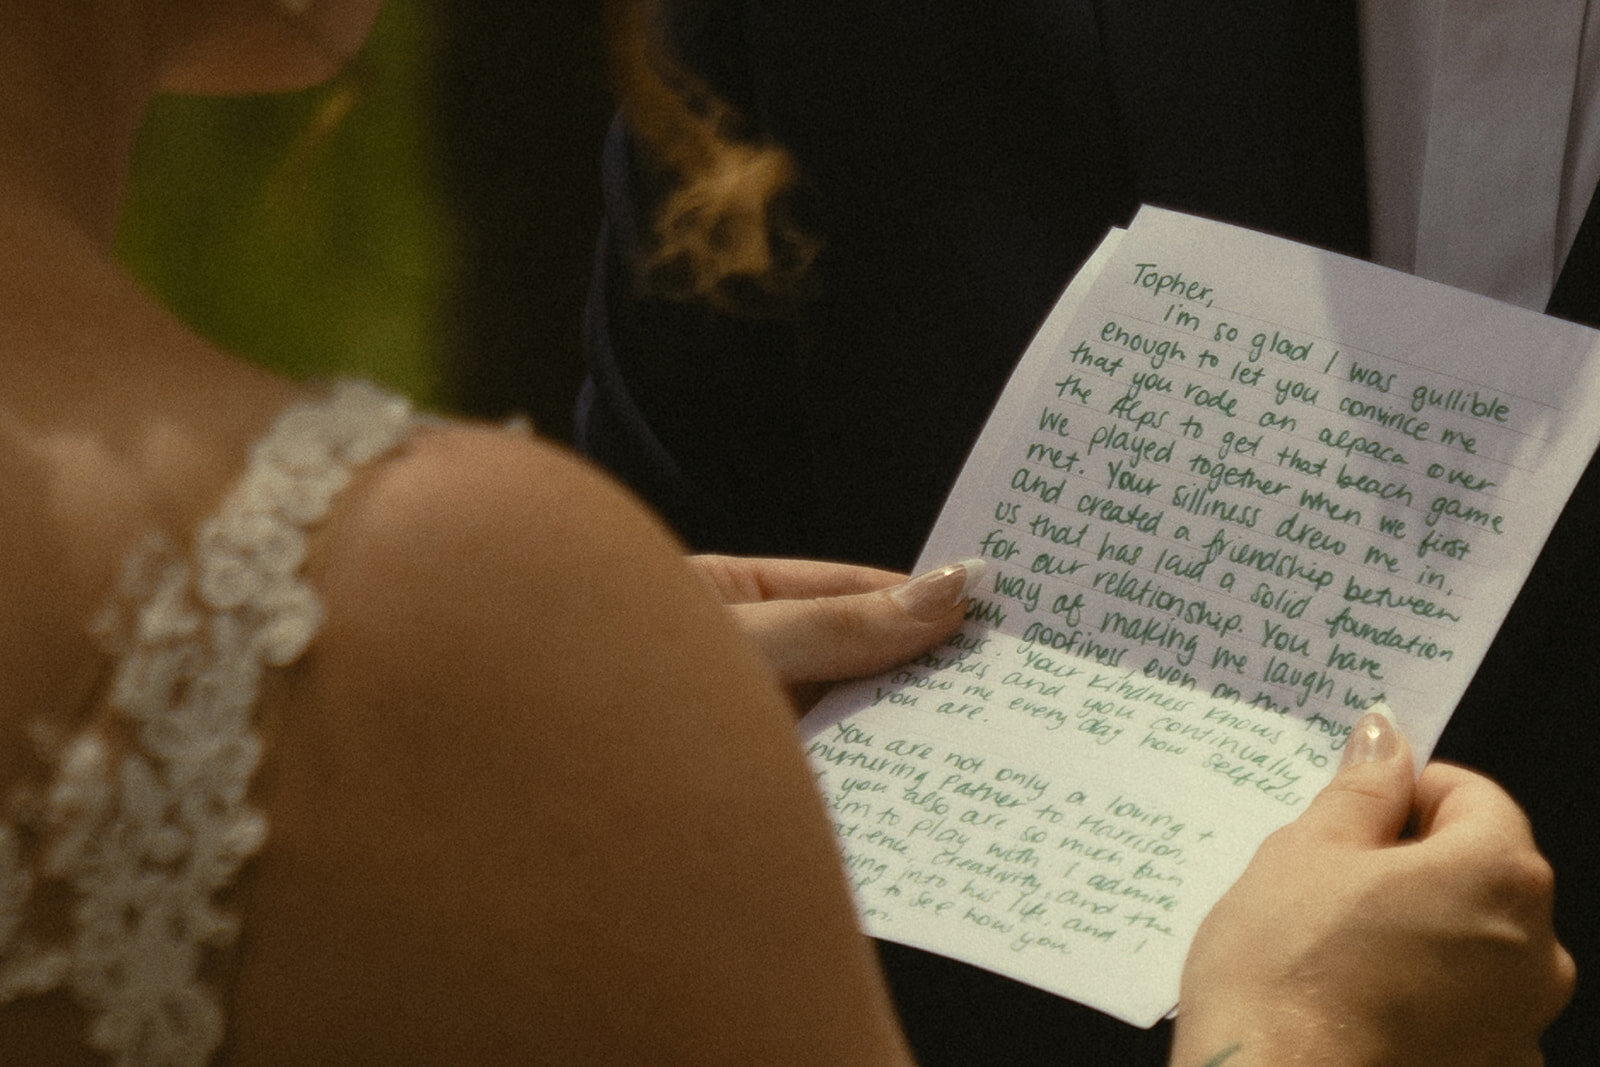 Topher,
I'm so glad I was gullible
enough to let you convince me
that you rode an alpaca over
the Alps to get that beach game
we played together when we first
met. Your silliness drew me in,
and created a friendship between
us that has laid a solid foundation
for our relationship. You have
way of making me laugh
goofiness, even on the
Your kindness knows no
bounds and you continually
show me every day how selfless
you are.
You are not only a loving +
nurturing father to Harrison,
you also are so much fun
to play with. I admire
creativity, and the
into his life, and I
to see how you